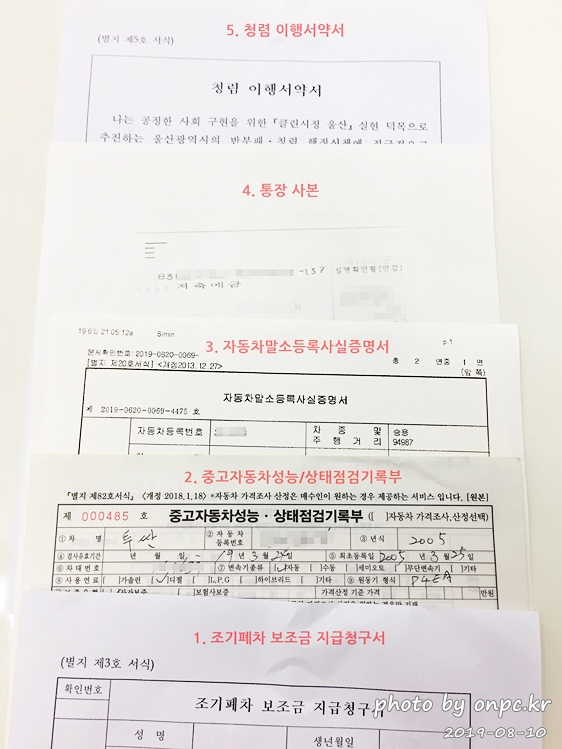 5. 청렴 이행서약서
(별지 제5호 서식)
청렴 이행서약서
나는 공정한 사회 구현을 위한 『클린시정 울산』 실현 덕목으로
추진하는 울산광역시의 반부패·청렴 행정시책에 적극적으로
4. 통장 사본
831 -137 실명확인필(인감)
저축예금
19 6월 21 05:12a Simin p.1
3. 자동차말소등록사실증명서
문서확인번호: 2019-0620-0069-
총 2 면중 1 면
[별지 제20호서식] <개정2013.12.27> (앞 쪽)
자동차말소등록사실증명서
제 2019-0620-0069-4475 호
자동차등록번호 차 종 및 주 행 거 리 승용 94987
2. 중고자동차성능/상태점검기록부
『별지 제82호서식』 (개정 2018.1.18) *자동차 가격조사 산정은 매수인이 원하는 경우 제공하는 서비스 입니다. [원본]
제 000485 호 중고자동차성능·상태점검기록부([ ]자동차 가격조사.산정선택)
①차 명 투싼 ②자동차 등록번호 ③년식 2005
④검사유효기간 년 월 일~ 19년 3월 24일 ⑤최초등록일 2005년 3월 25일
⑥차대번호 ⑦변속기종류 [√]자동 [ ]수동 [ ]세미오토 [ ]무단변속기 [ ]기타
⑧사용연료 [ ]가솔린 [√]디젤 [ ]L.P.G [ ]하이브리드 [ ]기타 ⑨원동기 형식 D4EA
[ ]자가보증 [ ]보험사보증 가격산정 기준 가격 만원
1. 조기폐차 보조금 지급청구서
(별지 제3호 서식)
확인번호
조기폐차 보조금 지급청구서
성 명 생년월일
photo by onpc.kr
2019-08-10